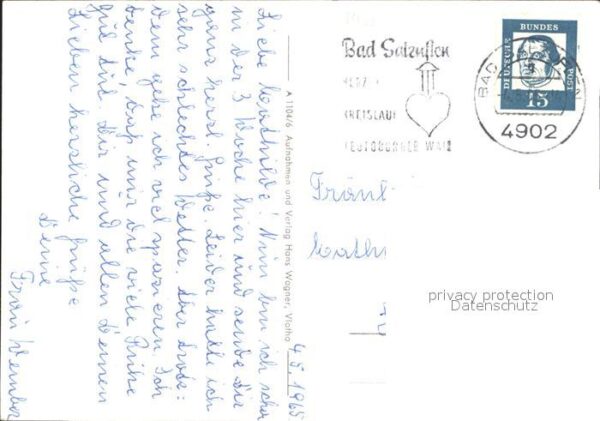 Liebe Mathilde! Nun bin ich schon
in der 3 Woche hier und sende Dir
ganz herzl. Grüße. Leider hatte ich
sehr schlechtes Wetter. Aber trotz-
dem gehe ich viel spazieren. Ich
denke, daß mir die viele Ruhe
gut tut. Dir und allen Deinen
Lieben herzliche Grüße
Deine
Frau
4.5.1965
A 1104/6 Aufnahmen und Verlag Hans Wagner, Vlotho
Bad Salzuflen
HERZ
KREISLAUF
TEUTOBURGER WALD
DEUTSCHE
BUNDES
POST
15
BAD
UFLEN
4902
Fräul
Math
privacy protection
Datenschutz